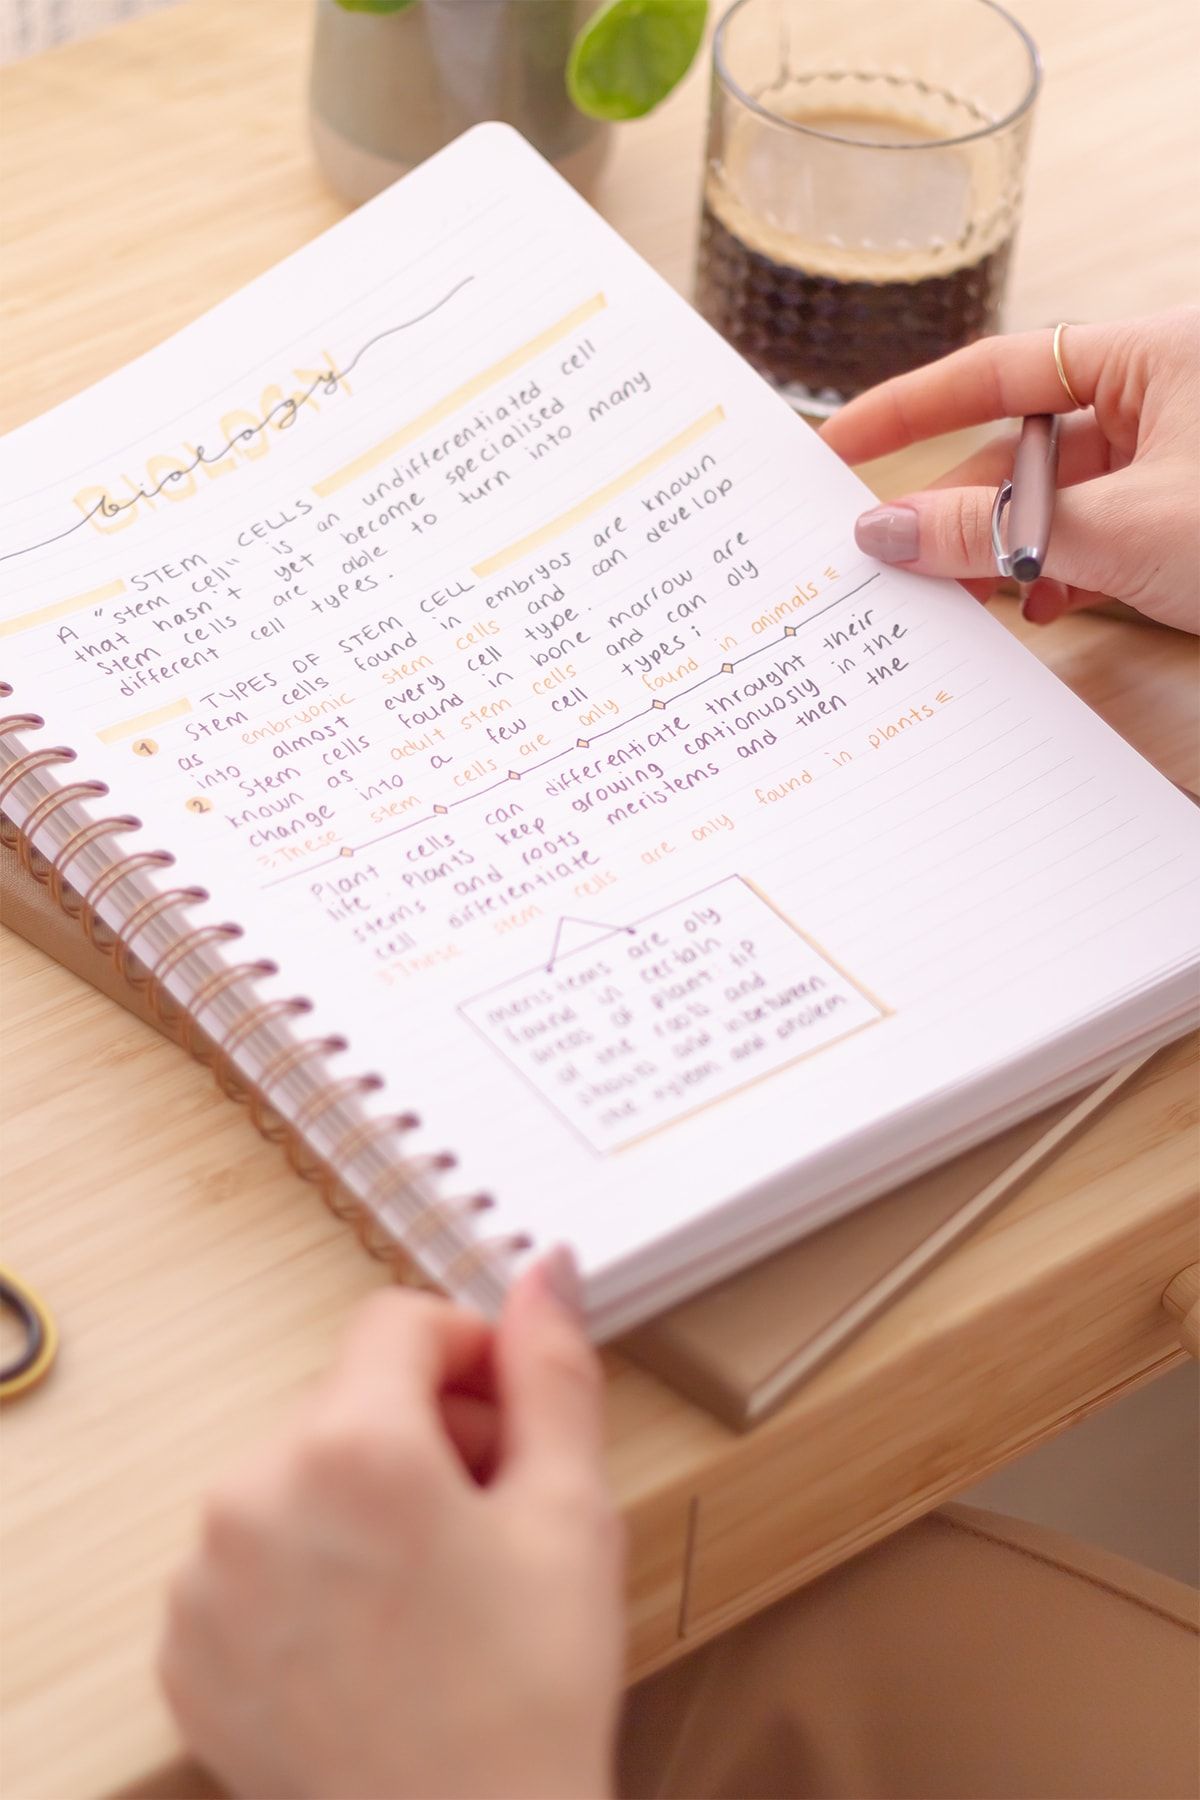 BIOLOGY
biology
STEM CELLS
A "stem cell" is an undifferentiated cell
that hasn't yet become specialised
stem cells are able to turn into many
different cell types.
TYPES OF STEM CELL
1 Stem cells found in embryos are known
as embryonic stem cells and can develop
into almost every cell type.
2 Stem cells found in bone marrow are
known as adult stem cells and can oly
change into a few cell types;
These stem cells are only found in animals
Plant cells can differentiate throught their
life. Plants keep growing contionuosly in the
stems and roots meristems and then the
cell differentiate
These stem cells are only found in plants
meristems are oly
found in certain
areas of plant: tip
of the roots and
shoots and inbetween
the xylem and phloem